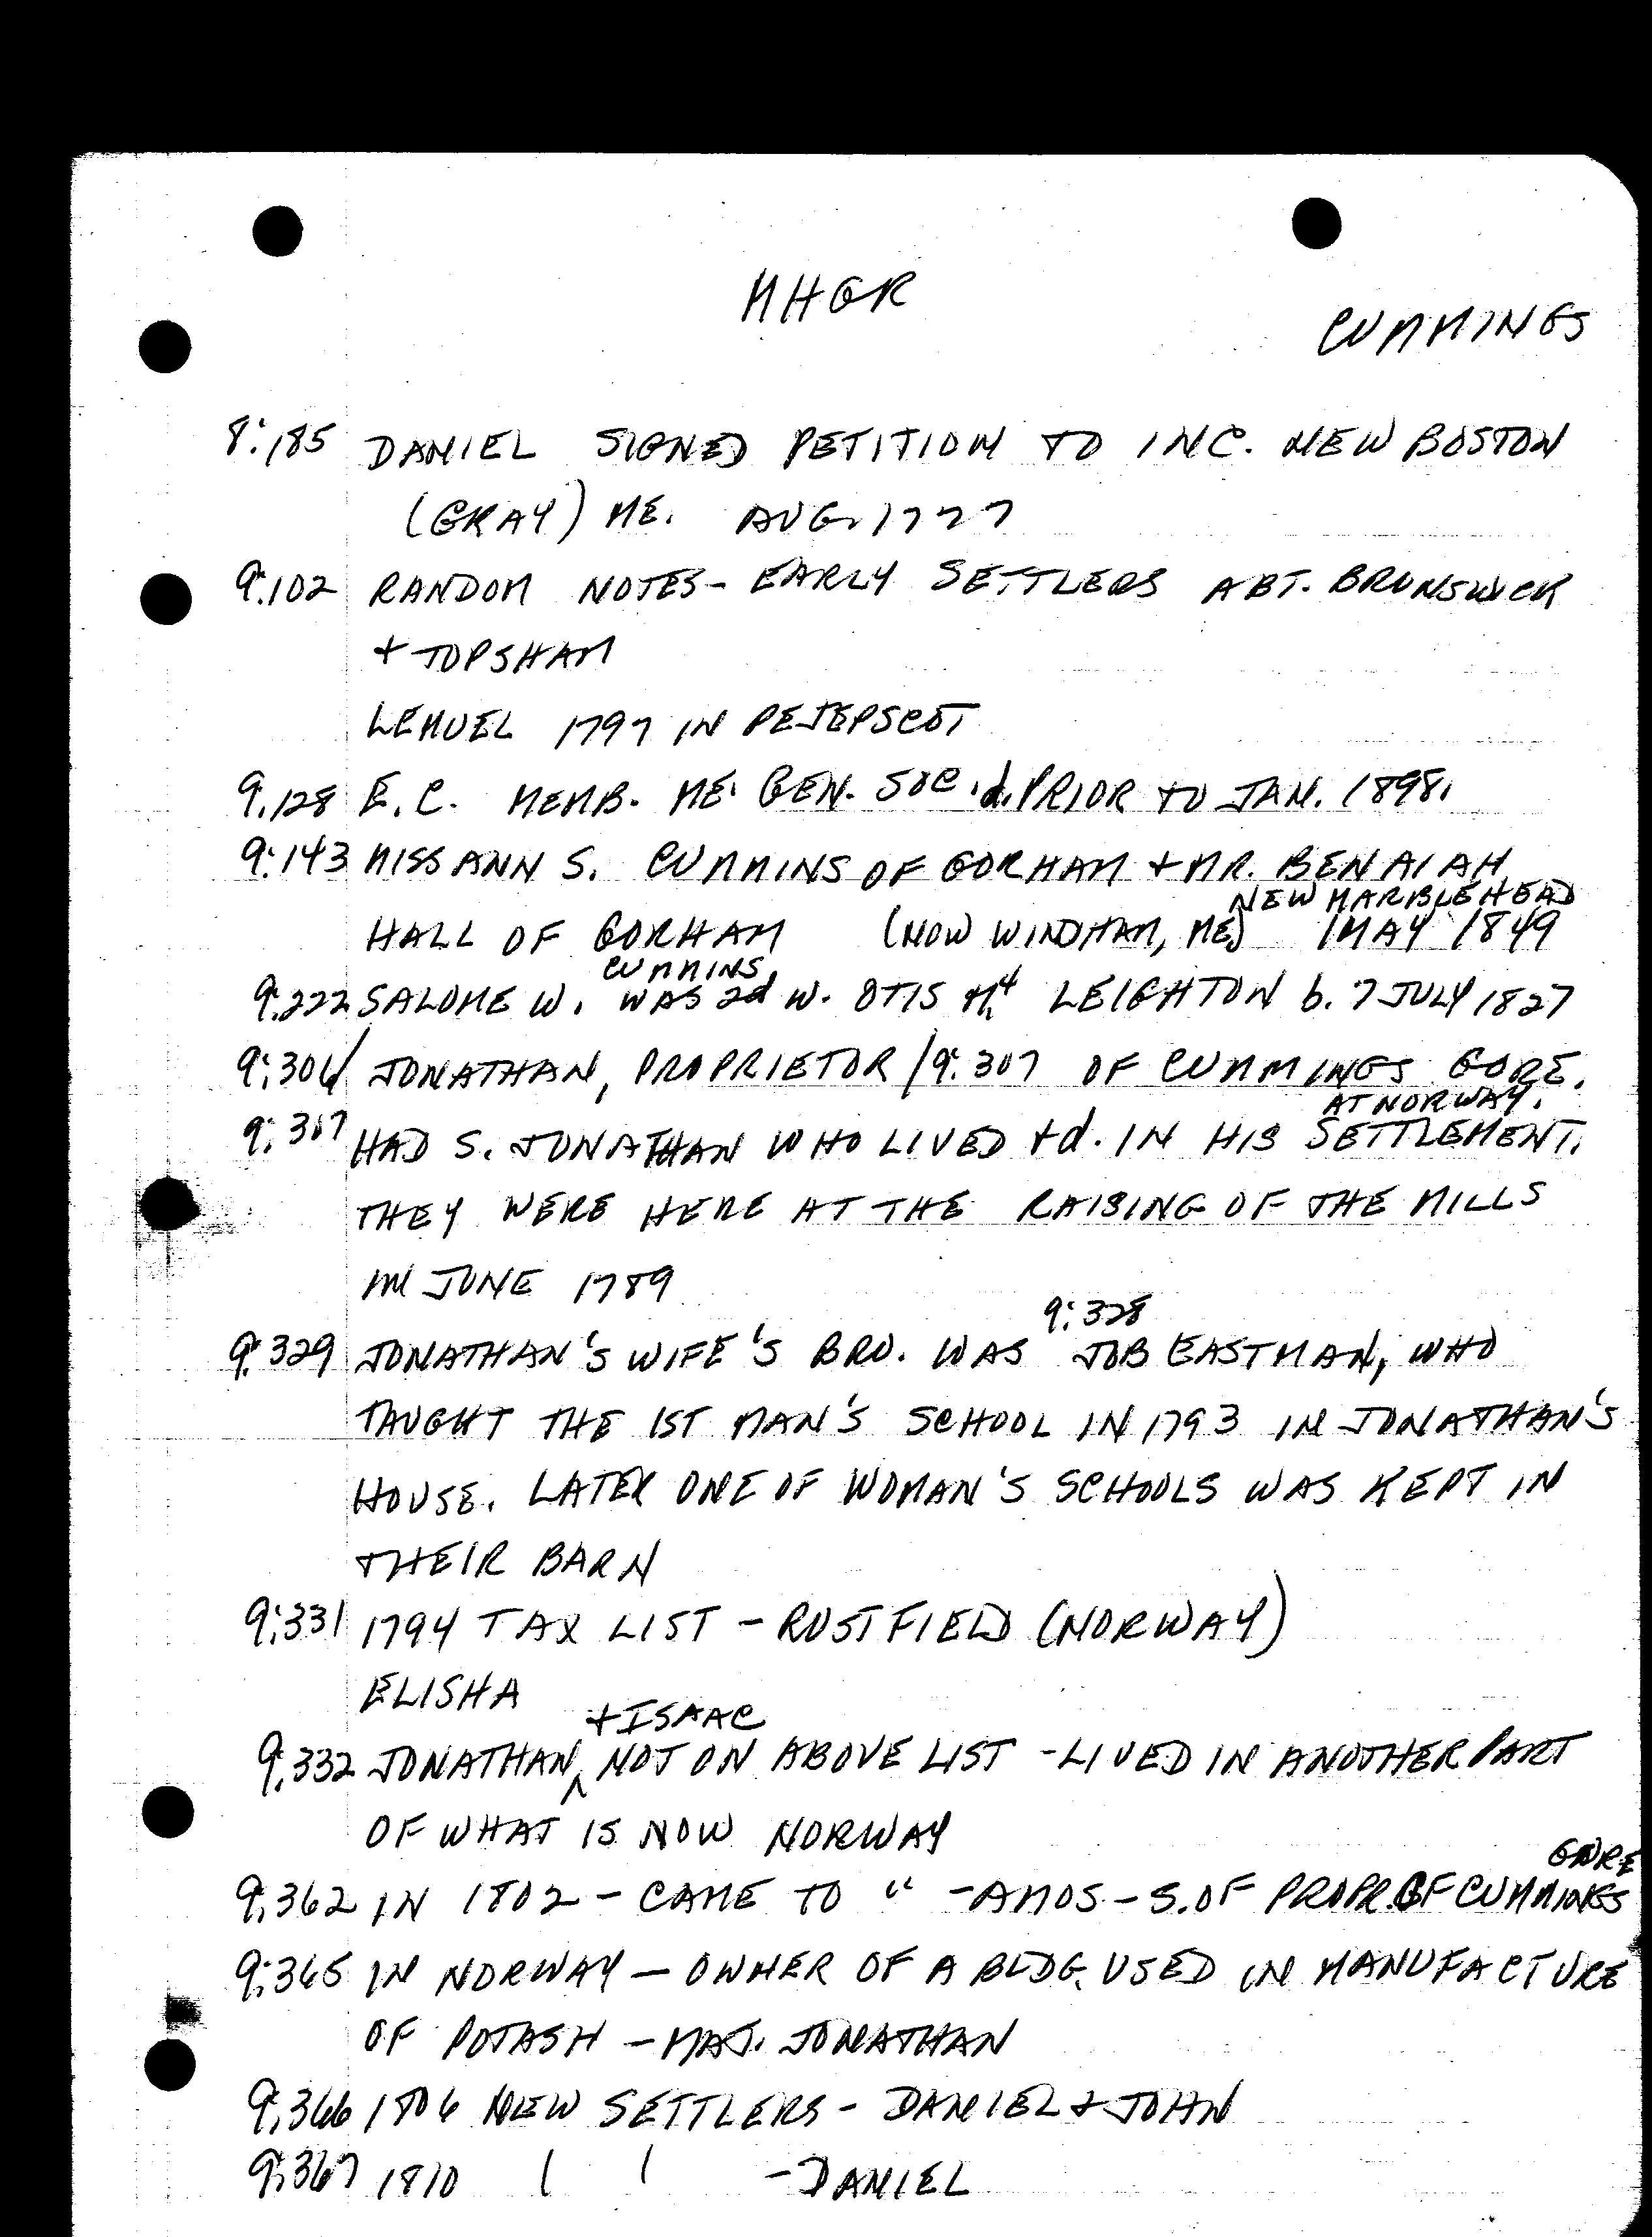 MHGR
CUMMINGS
8:185 DANIEL SIGNED PETITION TO INC. NEW BOSTON
(GRAY) ME. AUG. 1777
9:102 RANDOM NOTES - EARLY SETTLERS ABT. BRUNSWICK
+ TOPSHAM
LEMUEL 1797 IN PEJEPSCOT
9:128 E.C. MEMB. ME. GEN. SOC. d. PRIOR TO JAN. 1898.
9:143 MISS ANN S. CUMMINS OF GORHAM + MR. BENAIAH
NEW MARBLEHEAD
HALL OF GORHAM (NOW WINDHAM, ME) 1 MAY 1849
CUMMINS
9:222 SALOME W. WAS 2d W. OTIS LEIGHTON b. 7 JULY 1827
9:306/ JONATHAN, PROPRIETOR /9:307 OF CUMMINGS GORE.
AT NORWAY.
9:307 HAD S. JONATHAN WHO LIVED + d. IN HIS SETTLEMENT.
THEY WERE HERE AT THE RAISING OF THE MILLS
IN JUNE 1789
9:328
9:329 JONATHAN'S WIFE'S BRO. WAS JOB EASTMAN, WHO
TAUGHT THE 1ST MAN'S SCHOOL IN 1793 IN JONATHAN'S
HOUSE. LATER ONE OF WOMAN'S SCHOOLS WAS KEPT IN
THEIR BARN
9:331 1794 TAX LIST - RUSTFIELD (NORWAY)
ELISHA
+ ISAAC
9:332 JONATHAN ^ NOT ON ABOVE LIST - LIVED IN ANOTHER PART
OF WHAT IS NOW NORWAY
GORE
9:362 IN 1802 - CAME TO " - AMOS - S. OF PROPR. OF CUMMINGS
9:365 IN NORWAY - OWNER OF A BLDG. USED IN MANUFACTURE
OF POTASH - MAJ. JONATHAN
9:366 1806 NEW SETTLERS - DANIEL + JOHN
9:367 1810 - DANIEL